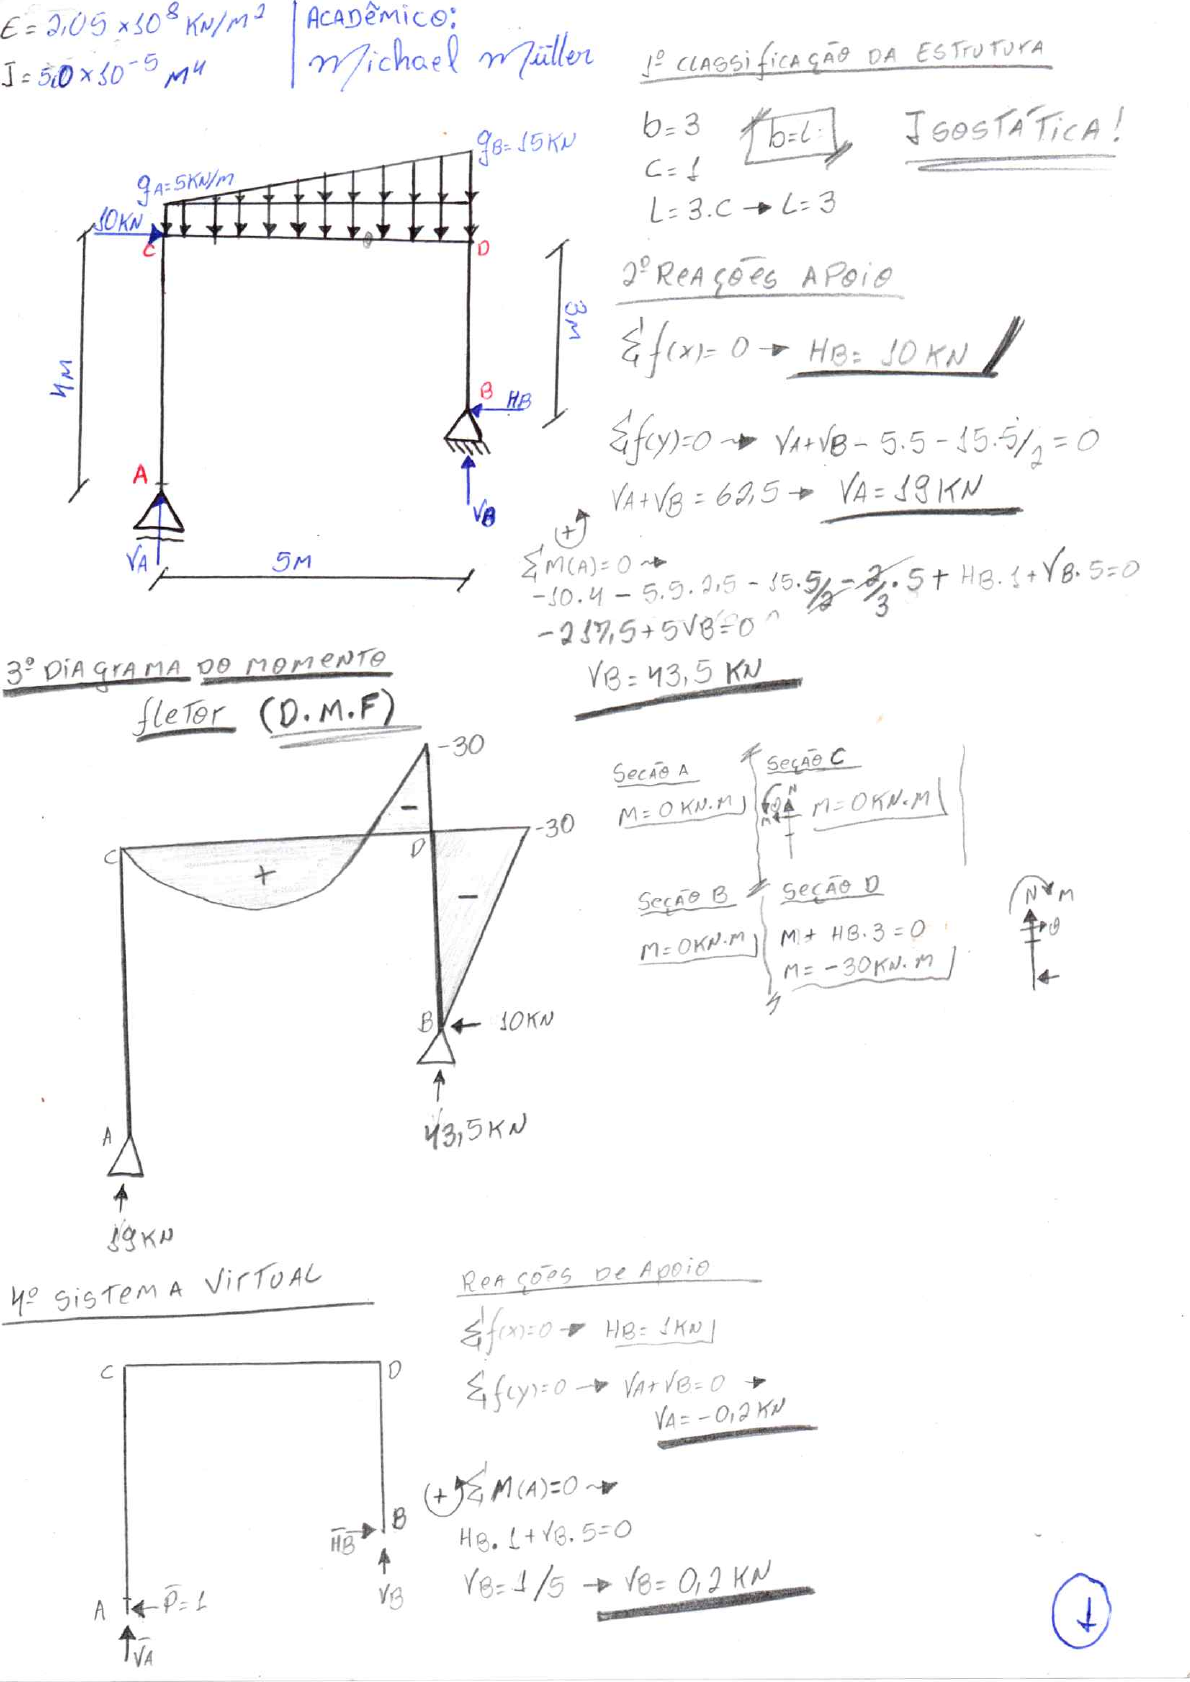 E = 2,05 x 10⁸ KN/M²
J = 5,0 x 10⁻⁵ M⁴
ACADÊMICO:
Michael Müller
1º CLASSIFICAÇÃO DA ESTRUTURA
b = 3
b = L
ISOSTÁTICA!
C = 1
L = 3.C → L = 3
qB = 15KN
qA = 5KN/M
10KN
C
D
4M
3M
B
HB
A
VB
VA
5M
2º REAÇÕES APOIO
Σf(x) = 0 → HB = 10 KN
Σf(y) = 0 → VA + VB - 5.5 - 15.5/2 = 0
VA + VB = 62,5 → VA = 19 KN
(+)
ΣM(A) = 0 →
-10.4 - 5.5.2,5 - 15.5/2 - 2/3.5 + HB.1 + VB.5 = 0
-217,5 + 5VB = 0
VB = 43,5 KN
3º DIAGRAMA DO MOMENTO
fletor (D.M.F)
-30
-30
C
D
+
-
-
B
10KN
43,5KN
A
19KN
SEÇÃO A
M = 0 KN.M
SEÇÃO C
N
M
M = 0 KN.M
SEÇÃO B
M = 0 KN.M
SEÇÃO D
M + HB.3 = 0
M = -30 KN.M
N
M
4º SISTEMA VIRTUAL
C
D
B
H̄B
VB
A
P̄ = 1
V̄A
REAÇÕES DE APOIO
Σf(x) = 0 → HB = 1KN
Σf(y) = 0 → VA + VB = 0 →
VA = -0,2 KN
(+) ΣM(A) = 0 →
HB.1 + VB.5 = 0
VB = 1/5 → VB = 0,2 KN
1